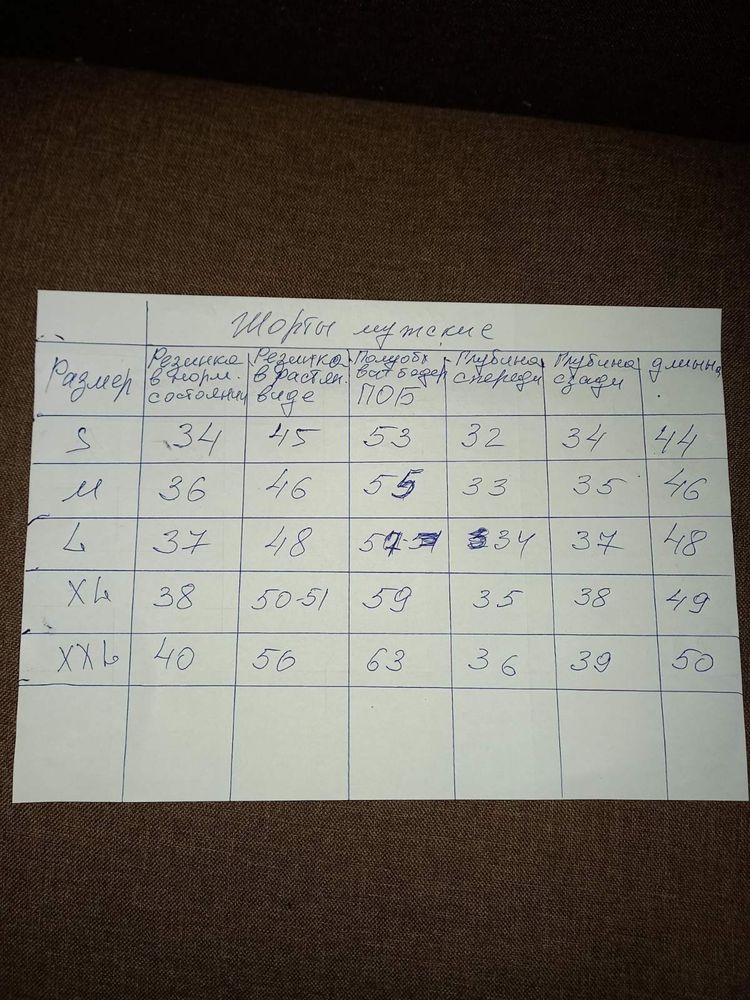 Шорты мужские
Размер Резинка в норм. состоянии Резинка в растян. виде Полуобхват бедер ПОБ Глубина спереди Глубина сзади длинна
S 34 45 53 32 34 44
M 36 46 55 33 35 46
L 37 48 57 34 37 48
XL 38 50-51 59 35 38 49
XXL 40 56 63 36 39 50